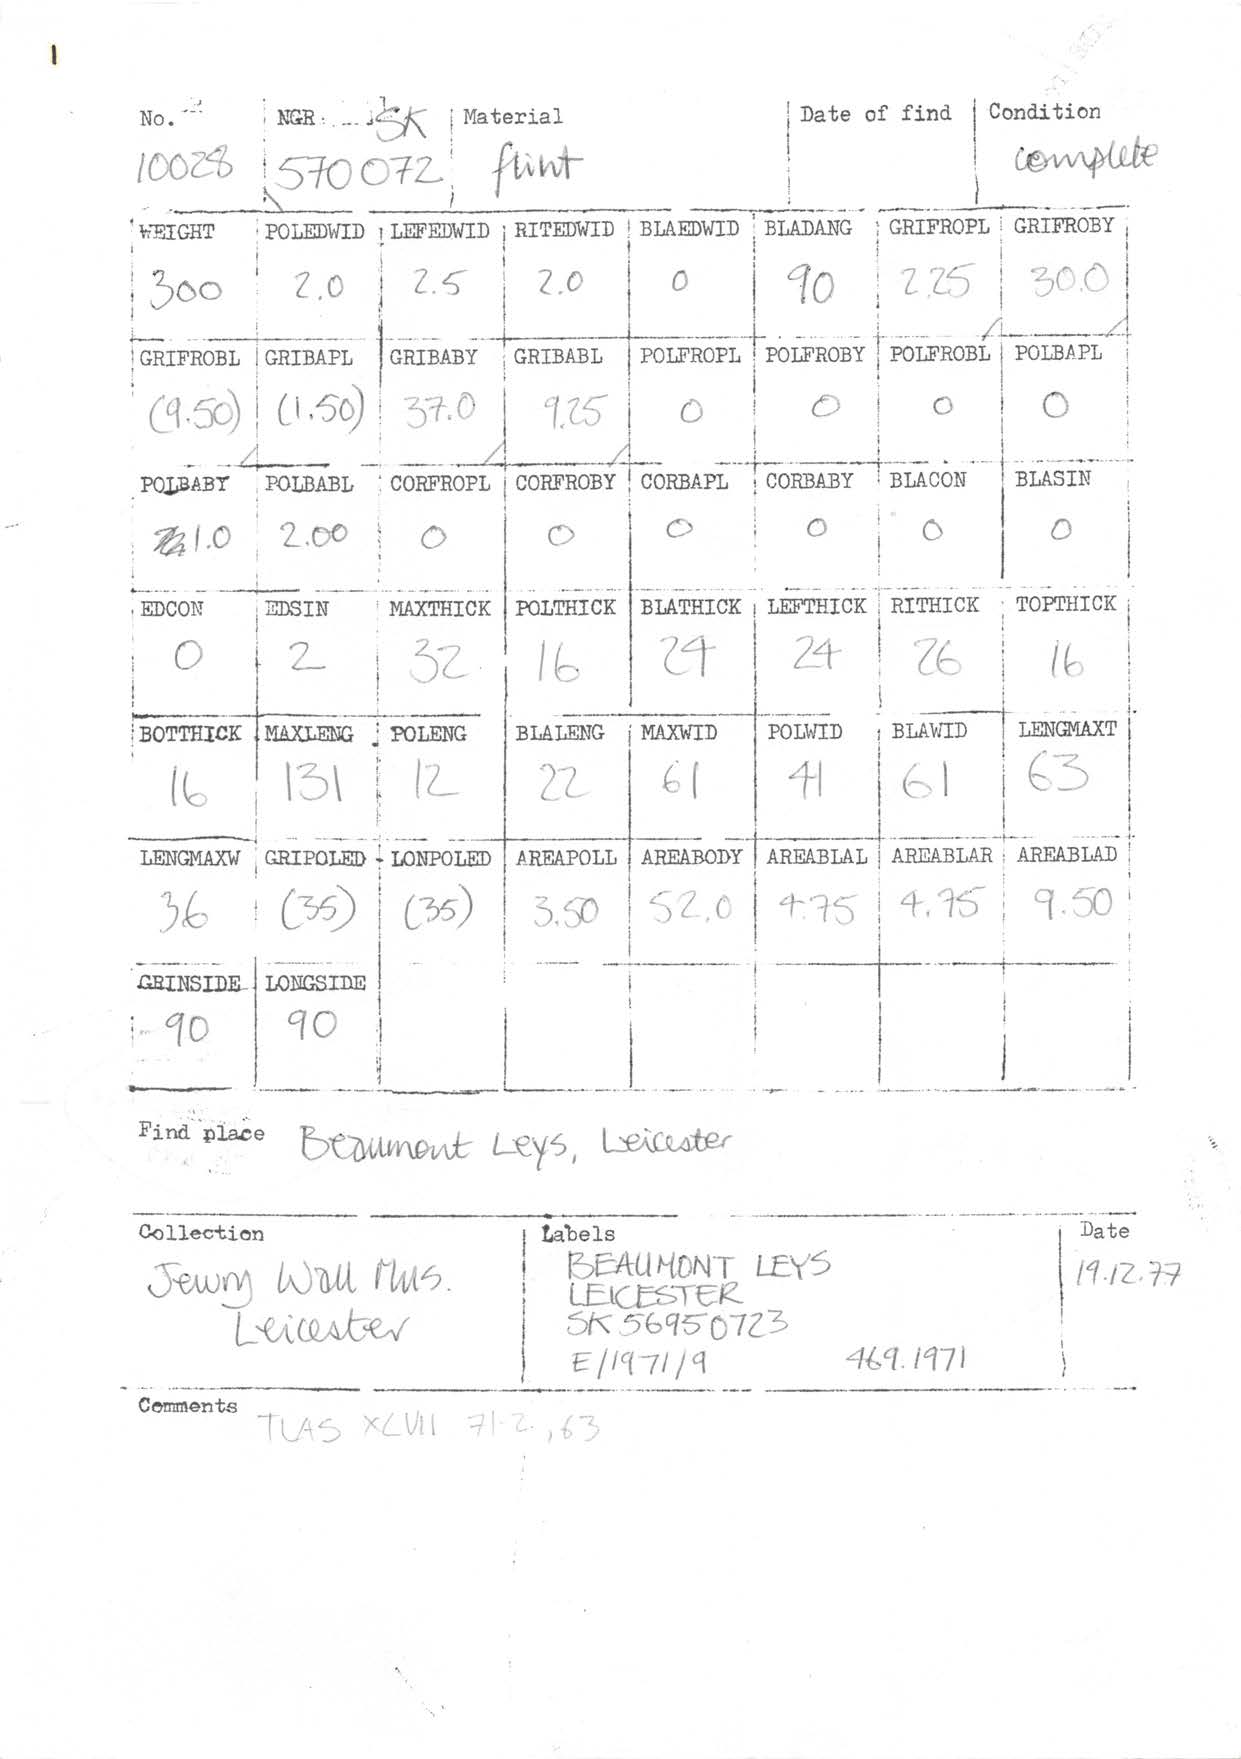 1
No. NGR SK Material Date of find Condition
10028 570072 flint complete
WEIGHT POLEDWID LEFEDWID RITEDWID BLAEDWID BLADANG GRIFROPL GRIFROBY
300 2.0 2.5 2.0 0 90 2.25 30.0
GRIFROBL GRIBAPL GRIBABY GRIBABL POLFROPL POLFROBY POLFROBL POLBAPL
(9.50) (1.50) 37.0 9.25 0 0 0 0
POLBABY POLBABL CORFROPL CORFROBY CORBAPL CORBABY BLACON BLASIN
1.0 2.00 0 0 0 0 0 0
EDCON EDSIN MAXTHICK POLTHICK BLATHICK LEFTHICK RITHICK TOPTHICK
0 2 32 16 24 24 26 16
BOTTHICK MAXLENG POLENG BLALENG MAXWID POLWID BLAWID LENGMAXT
16 131 12 22 61 41 61 63
LENGMAXW GRIPOLED LONPOLED AREAPOLL AREABODY AREABLAL AREABLAR AREABLAD
36 (35) (35) 3.50 52.0 4.75 4.75 9.50
GRINSIDE LONGSIDE
90 90
Find place Beaumont Leys, Leicester
Collection Labels Date
Jewry Wall Mus. BEAUMONT LEYS 19.12.77
Leicester LEICESTER
SK 5695 0723
E/1971/9 469.1971
Comments TLAS XLVII 71-2, 63